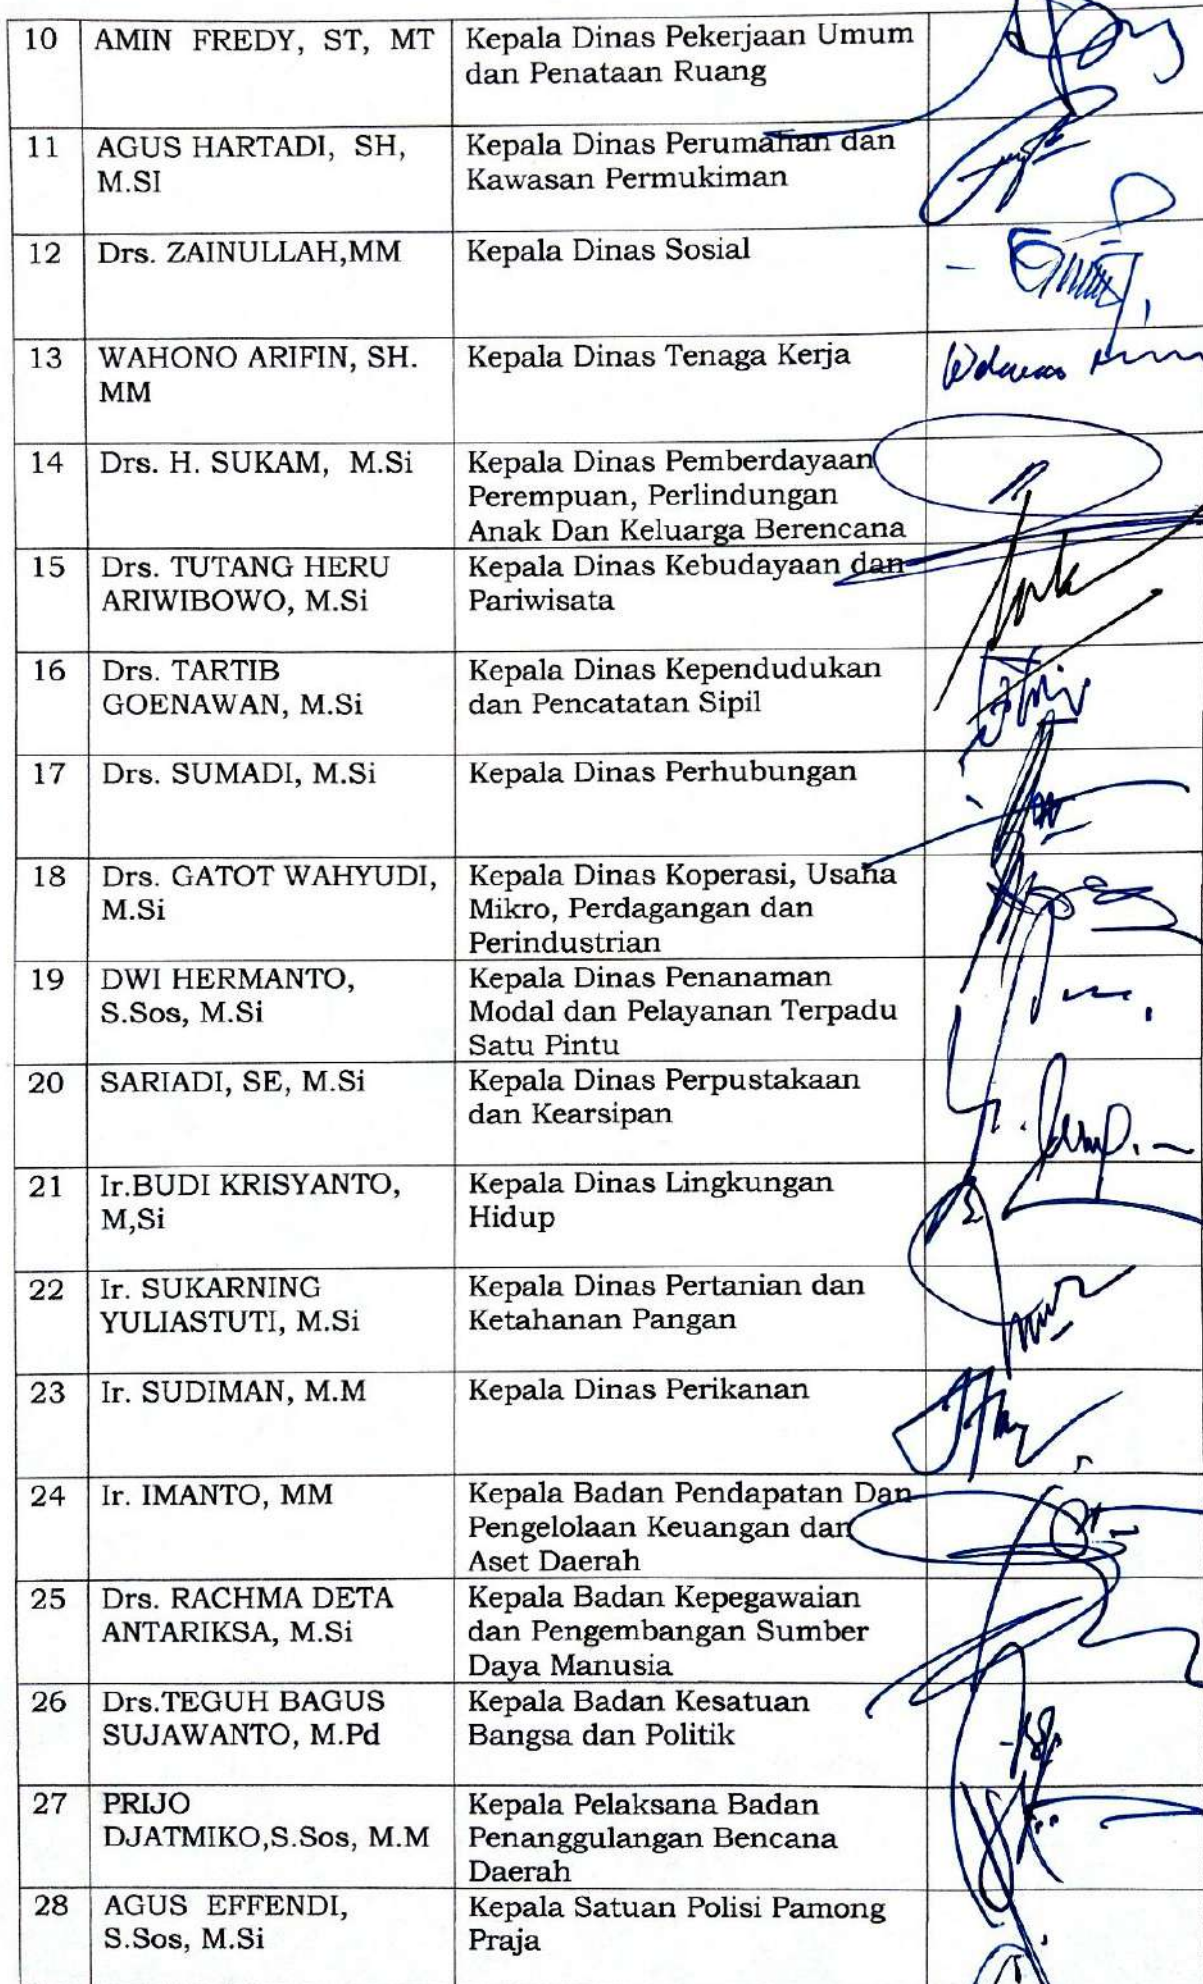 10 AMIN FREDY, ST, MT Kepala Dinas Pekerjaan Umum
dan Penataan Ruang
11 AGUS HARTADI, SH, Kepala Dinas Perumahan dan
M.SI Kawasan Permukiman
12 Drs. ZAINULLAH,MM Kepala Dinas Sosial
13 WAHONO ARIFIN, SH. Kepala Dinas Tenaga Kerja
MM
14 Drs. H. SUKAM, M.Si Kepala Dinas Pemberdayaan
Perempuan, Perlindungan
Anak Dan Keluarga Berencana
15 Drs. TUTANG HERU Kepala Dinas Kebudayaan dan
ARIWIBOWO, M.Si Pariwisata
16 Drs. TARTIB Kepala Dinas Kependudukan
GOENAWAN, M.Si dan Pencatatan Sipil
17 Drs. SUMADI, M.Si Kepala Dinas Perhubungan
18 Drs. GATOT WAHYUDI, Kepala Dinas Koperasi, Usaha
M.Si Mikro, Perdagangan dan
Perindustrian
19 DWI HERMANTO, Kepala Dinas Penanaman
S.Sos, M.Si Modal dan Pelayanan Terpadu
Satu Pintu
20 SARIADI, SE, M.Si Kepala Dinas Perpustakaan
dan Kearsipan
21 Ir.BUDI KRISYANTO, Kepala Dinas Lingkungan
M,Si Hidup
22 Ir. SUKARNING Kepala Dinas Pertanian dan
YULIASTUTI, M.Si Ketahanan Pangan
23 Ir. SUDIMAN, M.M Kepala Dinas Perikanan
24 Ir. IMANTO, MM Kepala Badan Pendapatan Dan
Pengelolaan Keuangan dan
Aset Daerah
25 Drs. RACHMA DETA Kepala Badan Kepegawaian
ANTARIKSA, M.Si dan Pengembangan Sumber
Daya Manusia
26 Drs.TEGUH BAGUS Kepala Badan Kesatuan
SUJAWANTO, M.Pd Bangsa dan Politik
27 PRIJO Kepala Pelaksana Badan
DJATMIKO,S.Sos, M.M Penanggulangan Bencana
Daerah
28 AGUS EFFENDI, Kepala Satuan Polisi Pamong
S.Sos, M.Si Praja